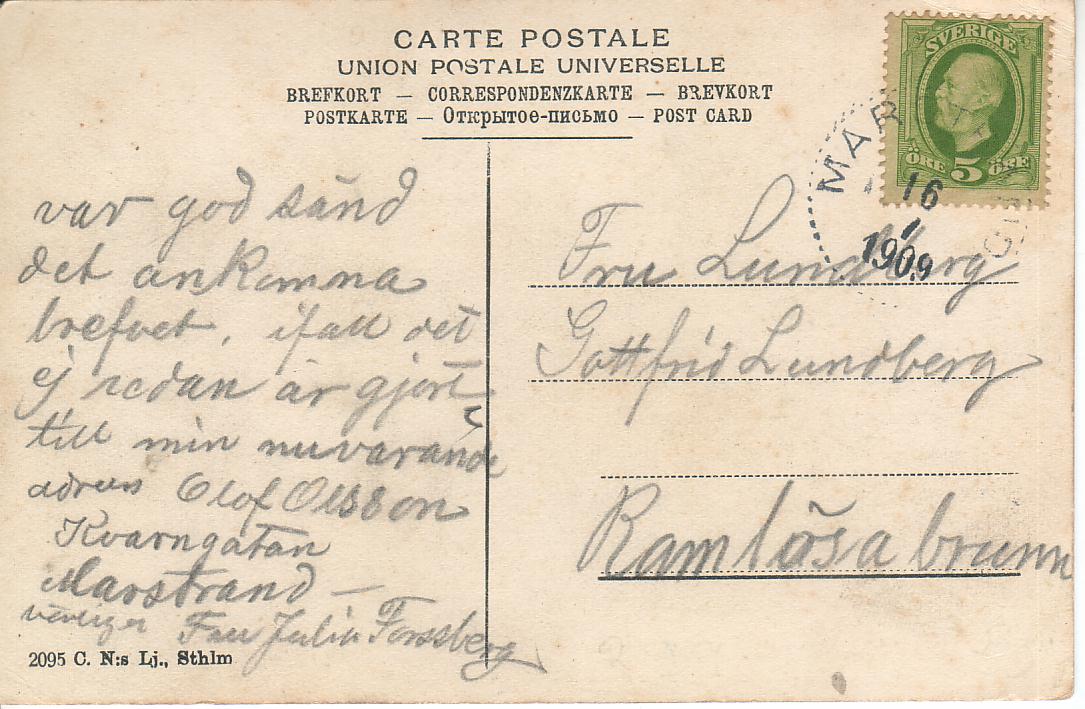 CARTE POSTALE
UNION POSTALE UNIVERSELLE
BREFKORT — CORRESPONDENZKARTE — BREVKORT
POSTKARTE — Открытое-письмо — POST CARD
SVERIGE
ÖRE 5 ÖRE
MAR
16
1909
var god sänd
det ankomna
brefvet, ifall det
ej redan är gjort
till min nuvarande
adress Olof Olsson
Kvarngatan
Marstrand —
Fru Julia Forssberg
2095 C. N:s Lj., Sthlm
Fru Lundberg
Gottfrid Lundberg
Ramlösa brunn